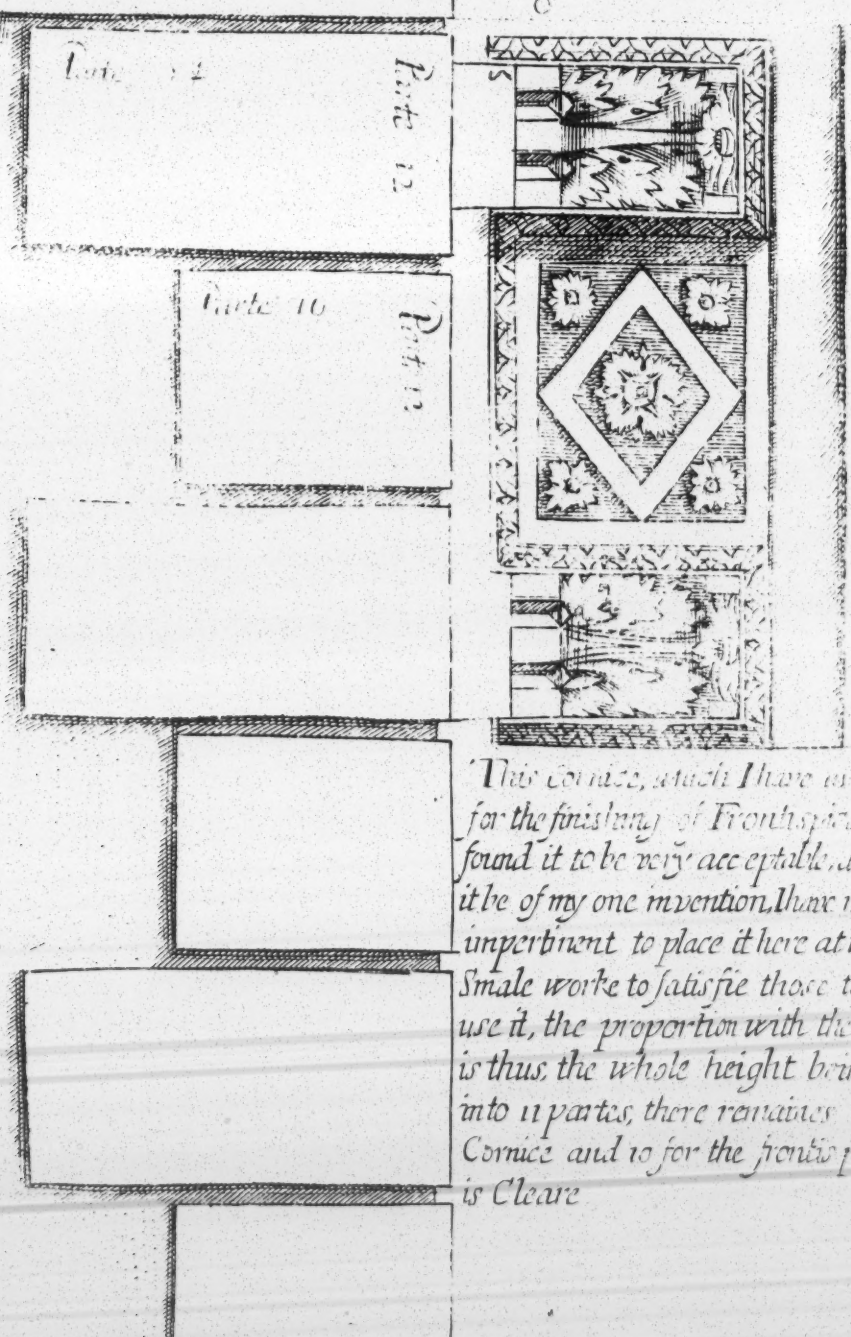 Parte 12
Parte 10
Parte 12
5
This Cornice, which I have
for the finishing of
found it to be very acceptable,
it be of my one invention, I have
impertinent to place it here at
Smale worke to satisfie those
use it, the proportion with the
is thus, the whole height
into 11 partes, there remaines
Cornice and 10 for the
is Cleare